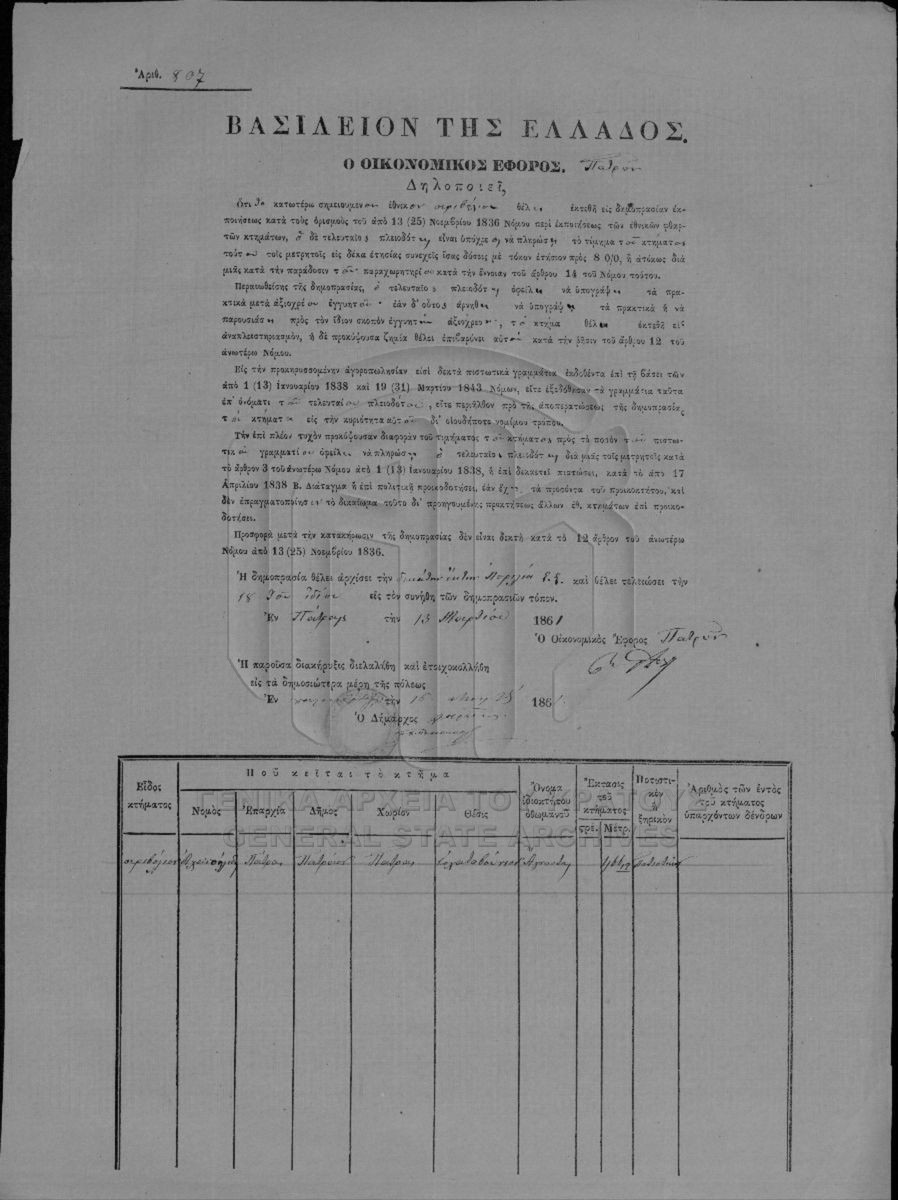 Ἀριθ. 807
ΒΑΣΙΛΕΙΟΝ ΤΗΣ ΕΛΛΑΔΟΣ.
Ο ΟΙΚΟΝΟΜΙΚΟΣ ΕΦΟΡΟΣ. Πατρῶν
Δηλοποιεῖ,
Ὅτι τὸ κατωτέρω σημειούμενον ἐθνικὸν θέλει ἐκτεθῆ εἰς δημοπρασίαν ἐκ-
ποιήσεως κατὰ τοὺς ὁρισμοὺς τοῦ ἀπὸ 13 (25) Νοεμβρίου 1836 Νόμου περὶ ἐκποιήσεως τῶν ἐθνικῶν φθαρ-
τῶν κτημάτων, ὁ δὲ τελευταῖος πλειοδότης εἶναι ὑπόχρεως νὰ πληρώσῃ τὸ τίμημα τοῦ κτήματος
τούτου τοῖς μετρητοῖς εἰς δέκα ἐτησίας συνεχεῖς ἴσας δόσεις μὲ τόκον ἐτήσιον πρὸς 8 0/0, ἢ ἀτόκως διὰ
μιᾶς κατὰ τὴν παράδοσιν τοῦ παραχωρητηρίου κατὰ τὴν ἔννοιαν τοῦ ἄρθρου 14 τοῦ Νόμου τούτου.
Περαιωθείσης τῆς δημοπρασίας, ὁ τελευταῖος πλειοδότης ὀφείλει νὰ ὑπογράψῃ τὰ πρα-
κτικὰ μετὰ ἀξιοχρέου ἐγγυητοῦ· ἐὰν δ' οὗτος ἀρνηθῇ νὰ ὑπογράψῃ τὰ πρακτικὰ ἢ νὰ
παρουσιάσῃ πρὸς τὸν ἴδιον σκοπὸν ἐγγυητὴν ἀξιόχρεων, τὸ κτῆμα θέλει ἐκτεθῆ εἰς
ἀναπλειστηριασμὸν, ἡ δὲ προκύψουσα ζημία θέλει ἐπιβαρύνει αὐτὸν κατὰ τὴν ῥῆσιν τοῦ ἄρθρου 12 τοῦ
ἀνωτέρω Νόμου.
Εἰς τὴν προκηρυσσομένην ἀγοροπωλησίαν εἰσὶ δεκτὰ πιστωτικὰ γραμμάτια ἐκδοθέντα ἐπὶ τῇ βάσει τῶν
ἀπὸ 1 (13) Ἰανουαρίου 1838 καὶ 19 (31) Μαρτίου 1843 Νόμων, εἴτε ἐξεδόθησαν τὰ γραμμάτια ταῦτα
ἐπ' ὀνόματι τοῦ τελευταίου πλειοδότου, εἴτε περιῆλθον πρὸ τῆς ἀποπερατώσεως τῆς δημοπρασίας
τοῦ κτήματος εἰς τὴν κυριότητα αὐτοῦ δι' οἱουδήποτε νομίμου τρόπου.
Τὴν ἐπὶ πλέον τυχὸν προκύψουσαν διαφορὰν τοῦ τιμήματος τοῦ κτήματος πρὸς τὸ ποσὸν τῶν πιστω-
τικῶν γραμματίων ὀφείλει νὰ πληρώσῃ ὁ τελευταῖος πλειοδότης διὰ μιᾶς τοῖς μετρητοῖς κατὰ
τὸ ἄρθρον 3 τοῦ ἀνωτέρω Νόμου ἀπὸ 1 (13) Ἰανουαρίου 1838, ἢ ἐπὶ δεκαετεῖ πιστώσει, κατὰ τὸ ἀπὸ 17
Ἀπριλίου 1838 Β. Διάταγμα ἢ ἐπὶ πολιτικῇ προικοδοτήσει, ἐὰν ἔχῃ τὰ προσόντα τοῦ προικοκτήτου, καὶ
δὲν ἐπραγματοποίησεν τὸ δικαίωμα τοῦτο δι' προηγουμένης προκτήσεως ἄλλων ἐθ. κτημάτων ἐπὶ προικο-
δοτήσει.
Προσφορὰ μετὰ τὴν κατακύρωσιν τῆς δημοπρασίας δὲν εἶναι δεκτὴ κατὰ τὸ 12 ἄρθρον τοῦ ἀνωτέρω
Νόμου ἀπὸ 13 (25) Νοεμβρίου 1836.
Ἡ δημοπρασία θέλει ἀρχίσει τὴν καὶ θέλει τελειώσει τὴν
18 τοῦ ἰδίου εἰς τὸν συνήθη τῶν δημοπρασιῶν τόπον.
Ἐν Πάτραις τὴν 13 Μαρτίου 1861
Ὁ Οἰκονομικὸς Ἔφορος Πατρῶν
Ἡ παροῦσα διακήρυξις διελαλήθη καὶ ἐτοιχοκολλήθη
εἰς τὰ δημοσιώτερα μέρη τῆς πόλεως
Ἐν τὴν 15 1861
Ὁ Δήμαρχος
Εἶδος κτήματος
Ποῦ κεῖται τὸ κτῆμα
Νομὸς Ἐπαρχία Δῆμος Χωρίον Θέσις
Ὄνομα ἰδιοκτήτου ὀθωμανοῦ
Ἔκτασις τοῦ κτήματος
στρε. Μέτρ.
Ποτιστικὸν ἢ ξηρικὸν
Ἀριθμὸς τῶν ἐντὸς τοῦ κτήματος ὑπαρχόντων δένδρων
Πάτρας Πατρέων Πάτραι Ἄγνωστος
ΓΕΝΙΚΑ ΑΡΧΕΙΑ ΤΟΥ ΚΡΑΤΟΥΣ
GENERAL STATE ARCHIVES